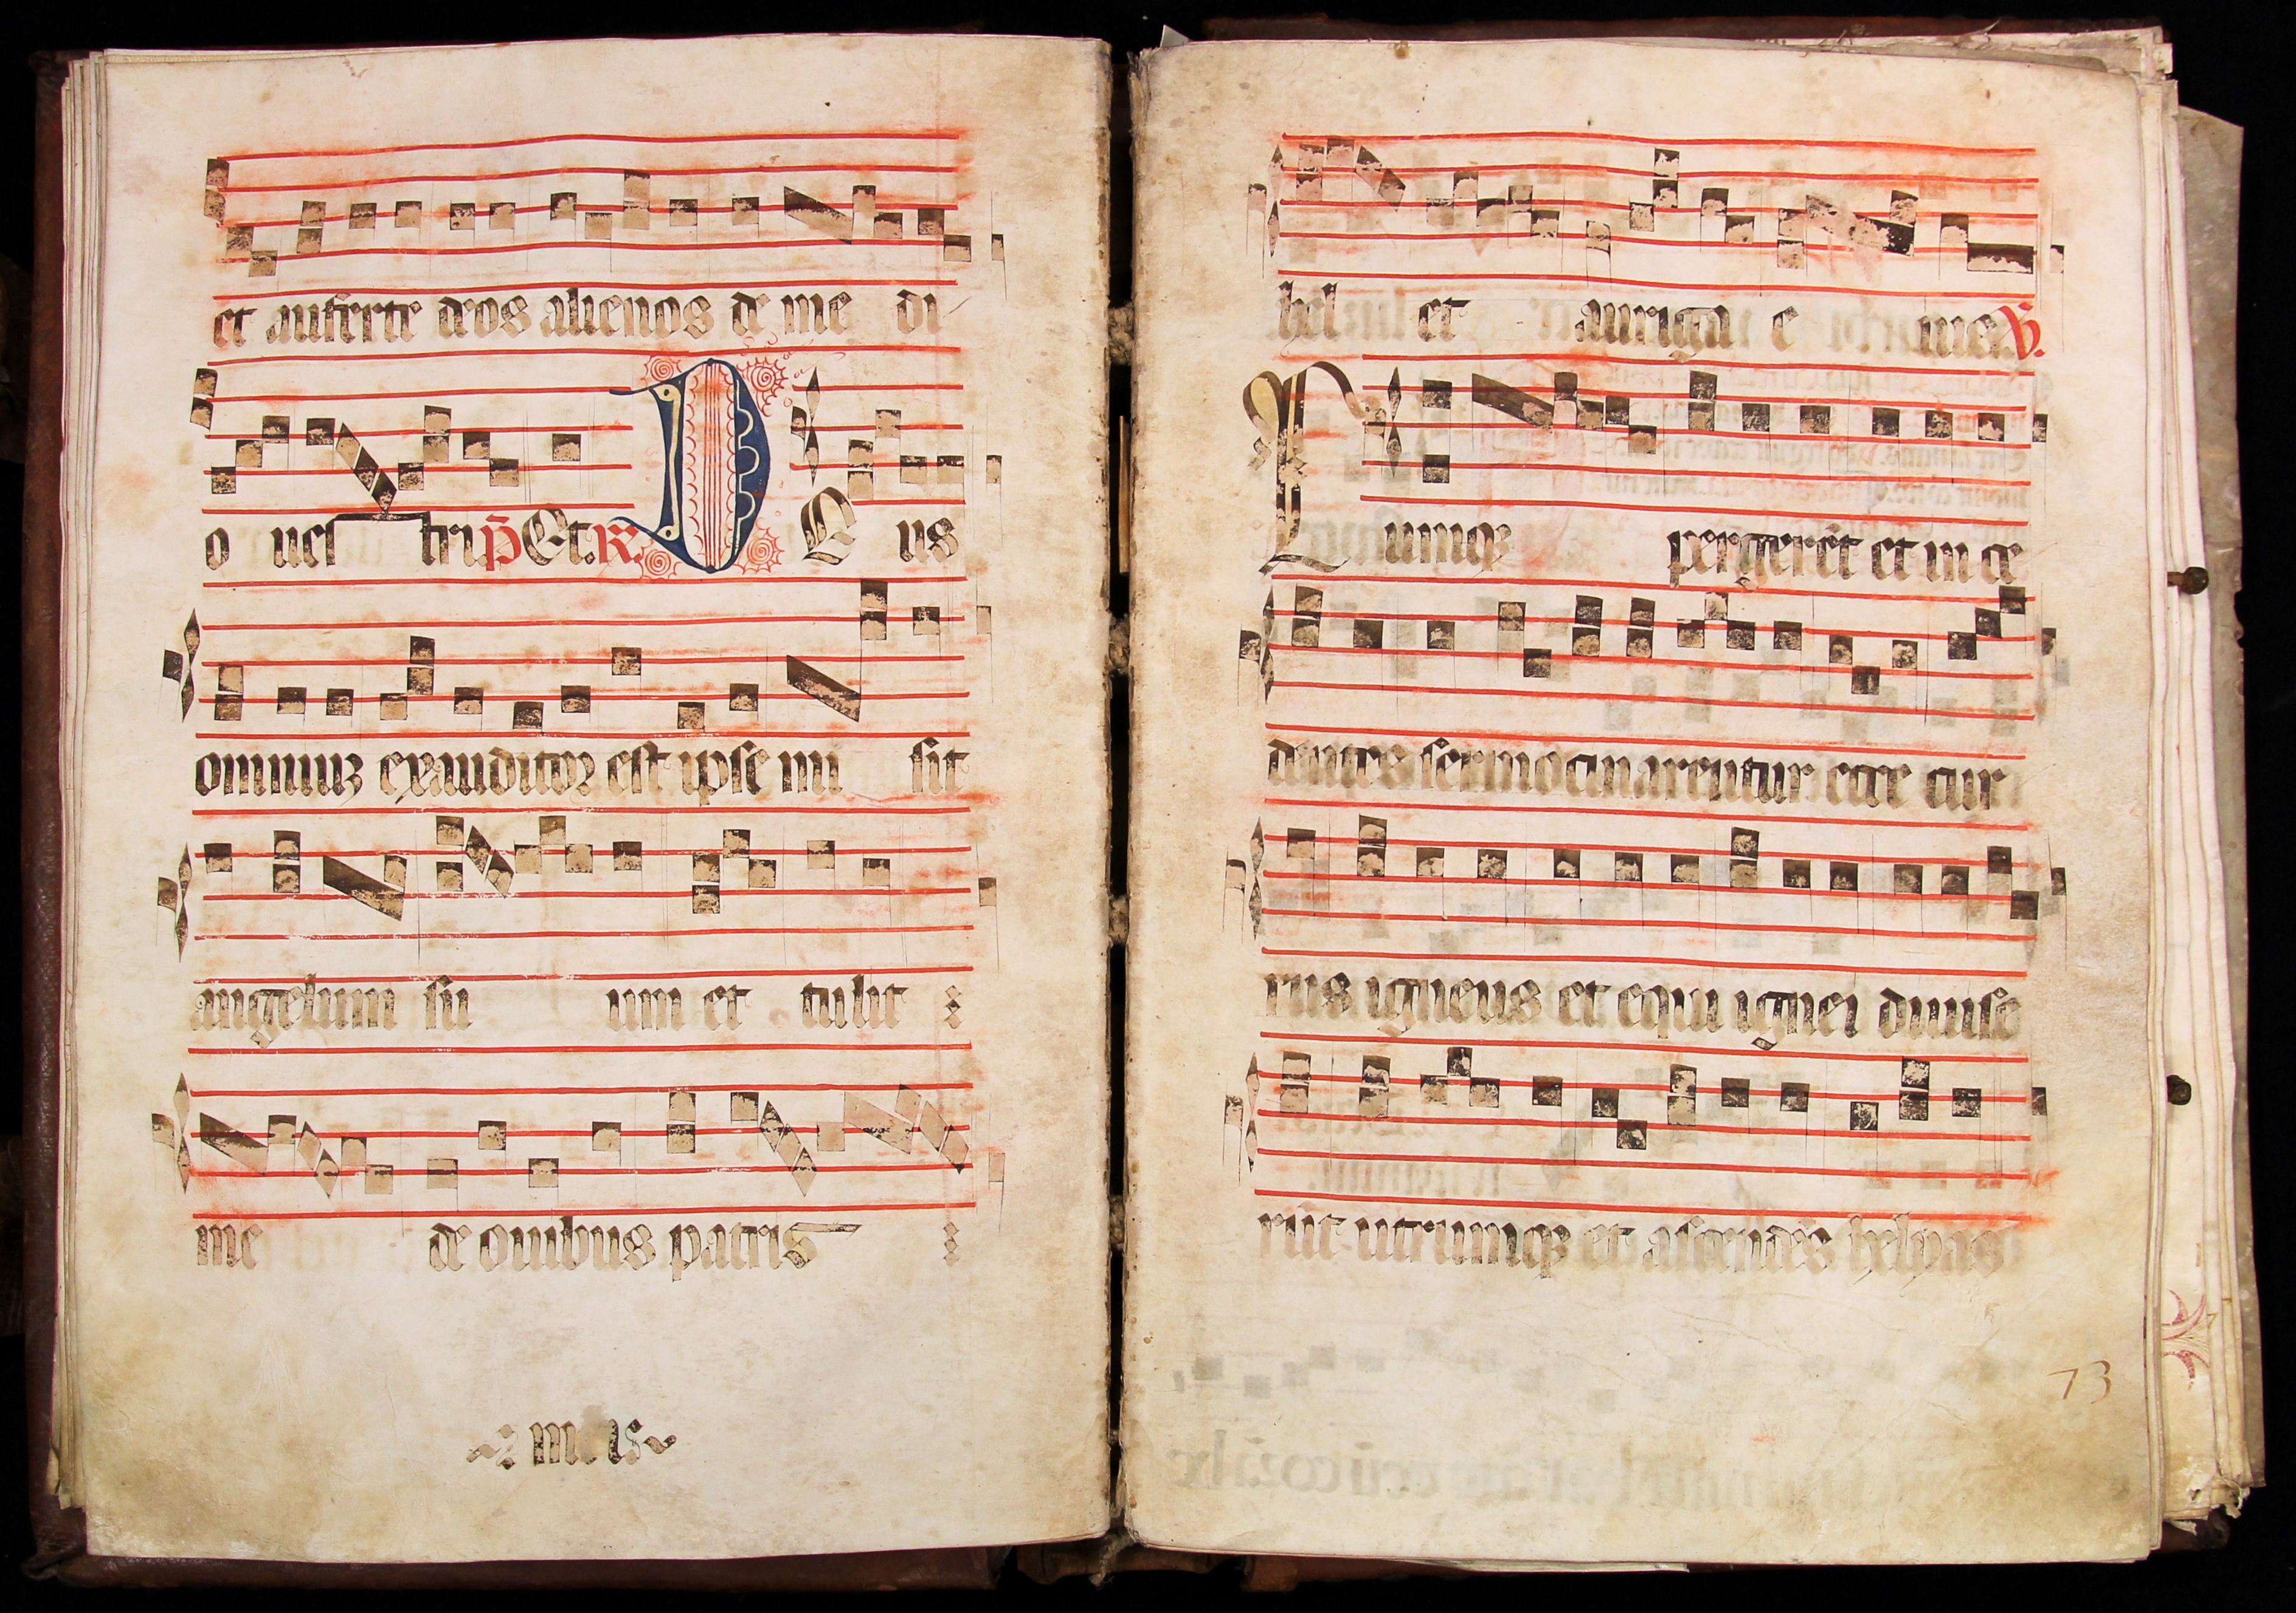 et auferte deos alienos de me di
o ues tri p̃ Et. R. D E us
omniuꝫ exauditoꝛ est ipse mi sit
angelum su um et tulit :
me de ouibus patris :
hel et auriga e ius. V.
C umqꝫ pergerēt et in ce
dentes sermocinarentur ecce cur
rus igneus et equi ignei diuise
rūt utrumqꝫ et ascendēs helyas
73